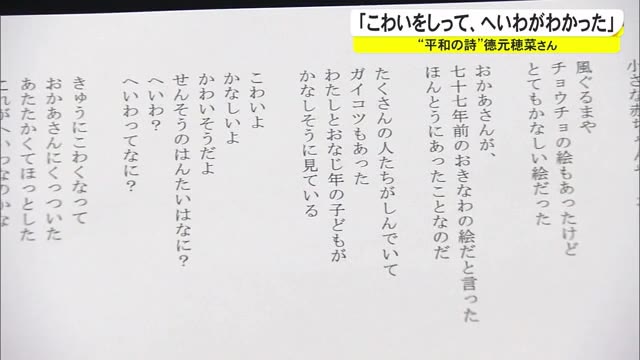 「こわいをしって、へいわがわかった」
“平和の詩”徳元穂菜さん
小さな赤ちゃん
風ぐるまや
チョウチョの絵もあったけど
とてもかなしい絵だった
おかあさんが、
七十七年前のおきなわの絵だと言った
ほんとうにあったことなのだ
たくさんの人たちがしんでいて
ガイコツもあった
わたしとおなじ年の子どもが
かなしそうに見ている
こわいよ
かなしいよ
かわいそうだよ
せんそうのはんたいはなに？
へいわ？
へいわってなに？
きゅうにこわくなって
おかあさんにくっついた
あたたかくてほっとした
これがへいわなのかな